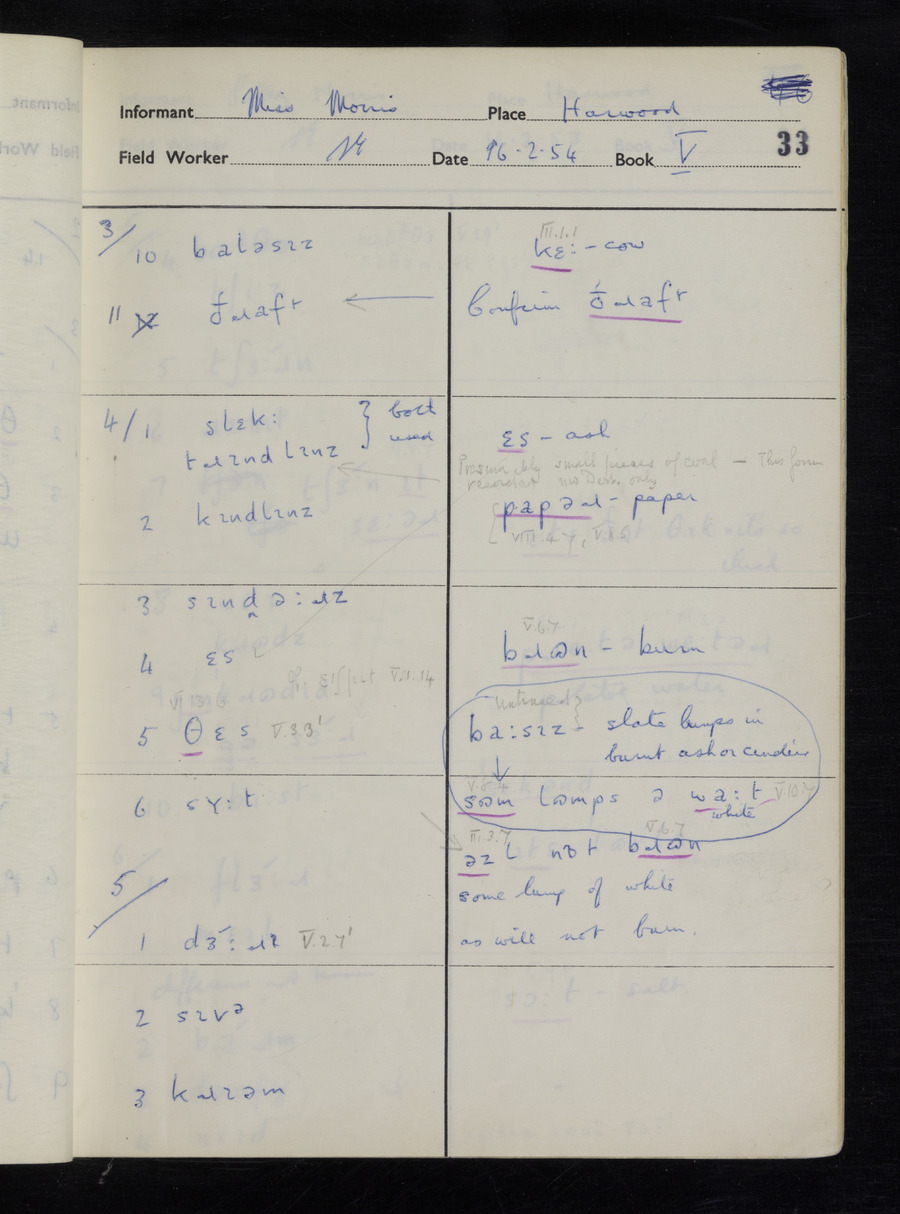 Informant Miss Morris Place Harwood
Field Worker Date 16.2.54 Book V 33
3/
10 baləsɪz
11 ðɹaft
4/1 slɛk: } both used
tɹɪndlɪnz
2 kɪndlɪnz
3 sɪndə:ɹz
4 ɛs
cf. V.1.14
VI.13.6
5 θɛs V.3.3'
6 sʏ:t
5/
1 dɜ:ɹɪ V.2.7'
2 sɪvə
3 kɹɪəm
III.1.1
kɛ: - cow
Confirm ðɹaft
ɛs - ash
Presumably small pieces of coal – This form
recorded only
papəɹ - paper
V.6.7
bɹɷn - burn
ba:sɪz - slate lumps in
burnt ash or cinders
V.8.4
sɷm lɷmps ə wa:t V.10.7
white
III.3.7 V.6.7
əz l nɒt bɹɷn
some lump of white
as will not burn.